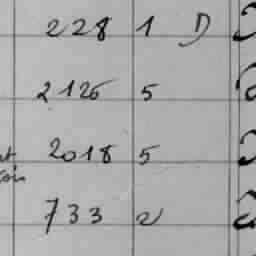 228 1 D
2126 5
2018 5
733 2